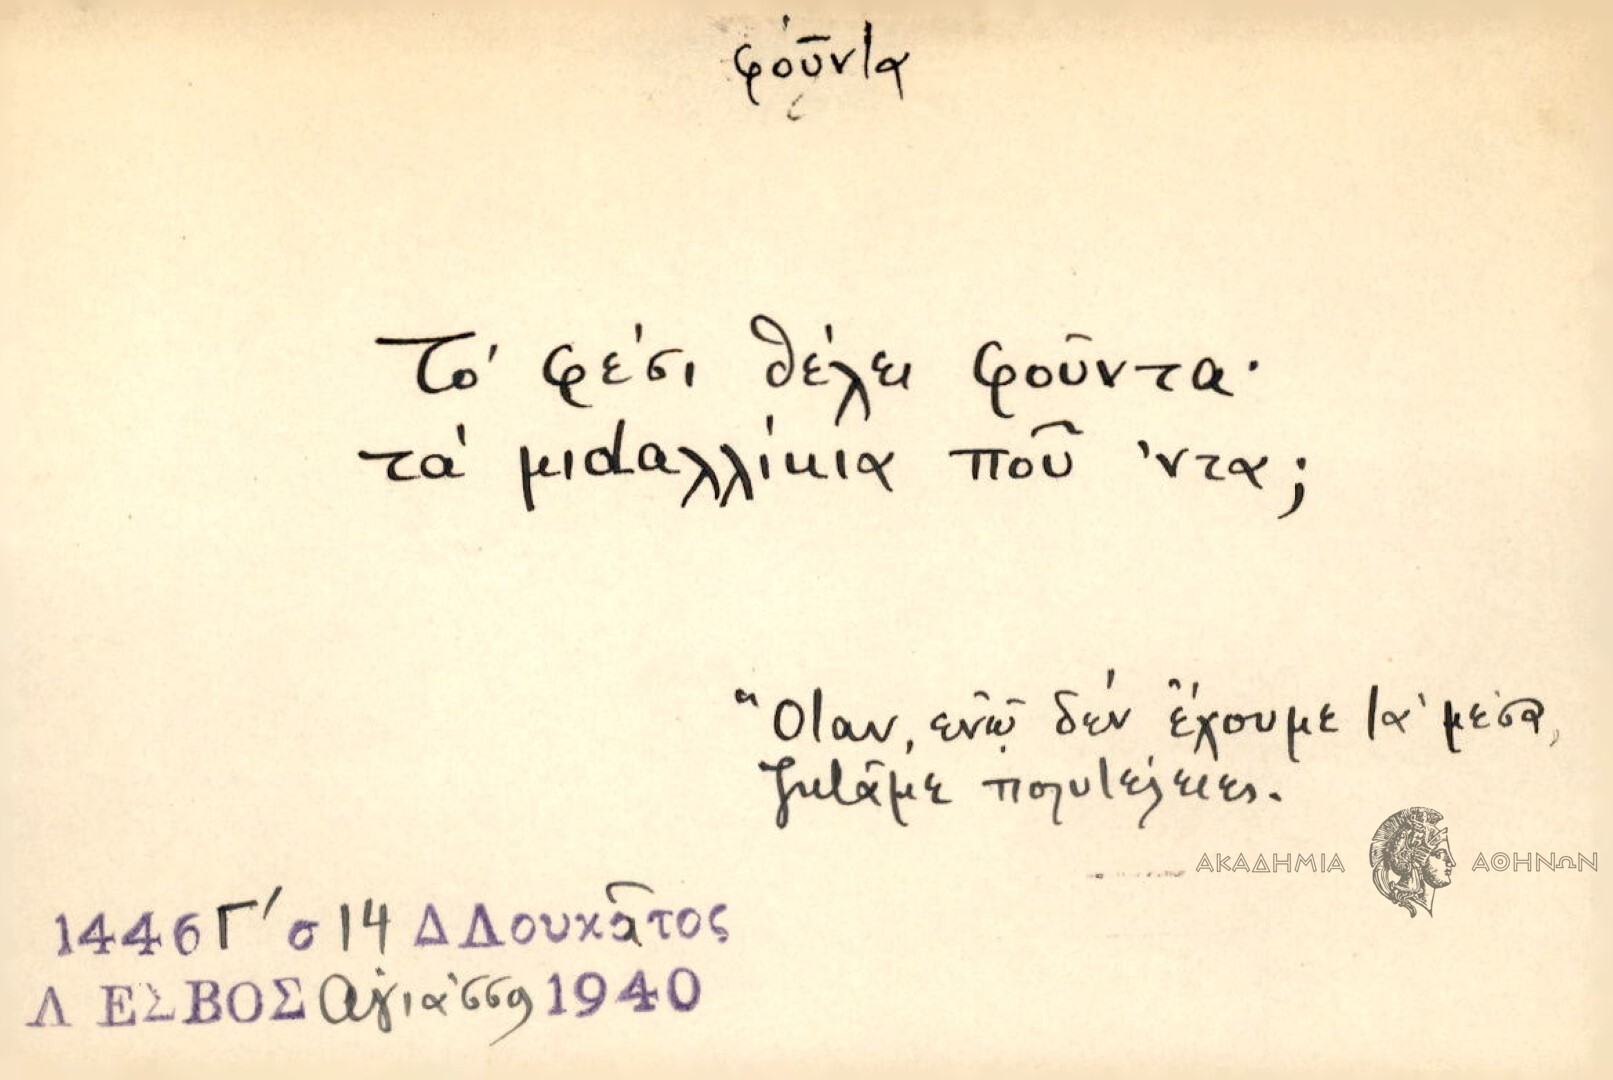 φοῦντα
Τό φέσι θέλει φοῦντα·
τά μιdαλλίκια ποῦ 'ντα;
"Οταν, ἐνῷ δέν ἔχουμε τά μέσα,
ζητᾶμε πολυτέλειες.
ΑΚΑΔΗΜΙΑ ΑΘΗΝΩΝ
1446 Γ' σ 14 Δ Λουκᾶτος
ΛΕΣΒΟΣ Ἁγιάσσο 1940